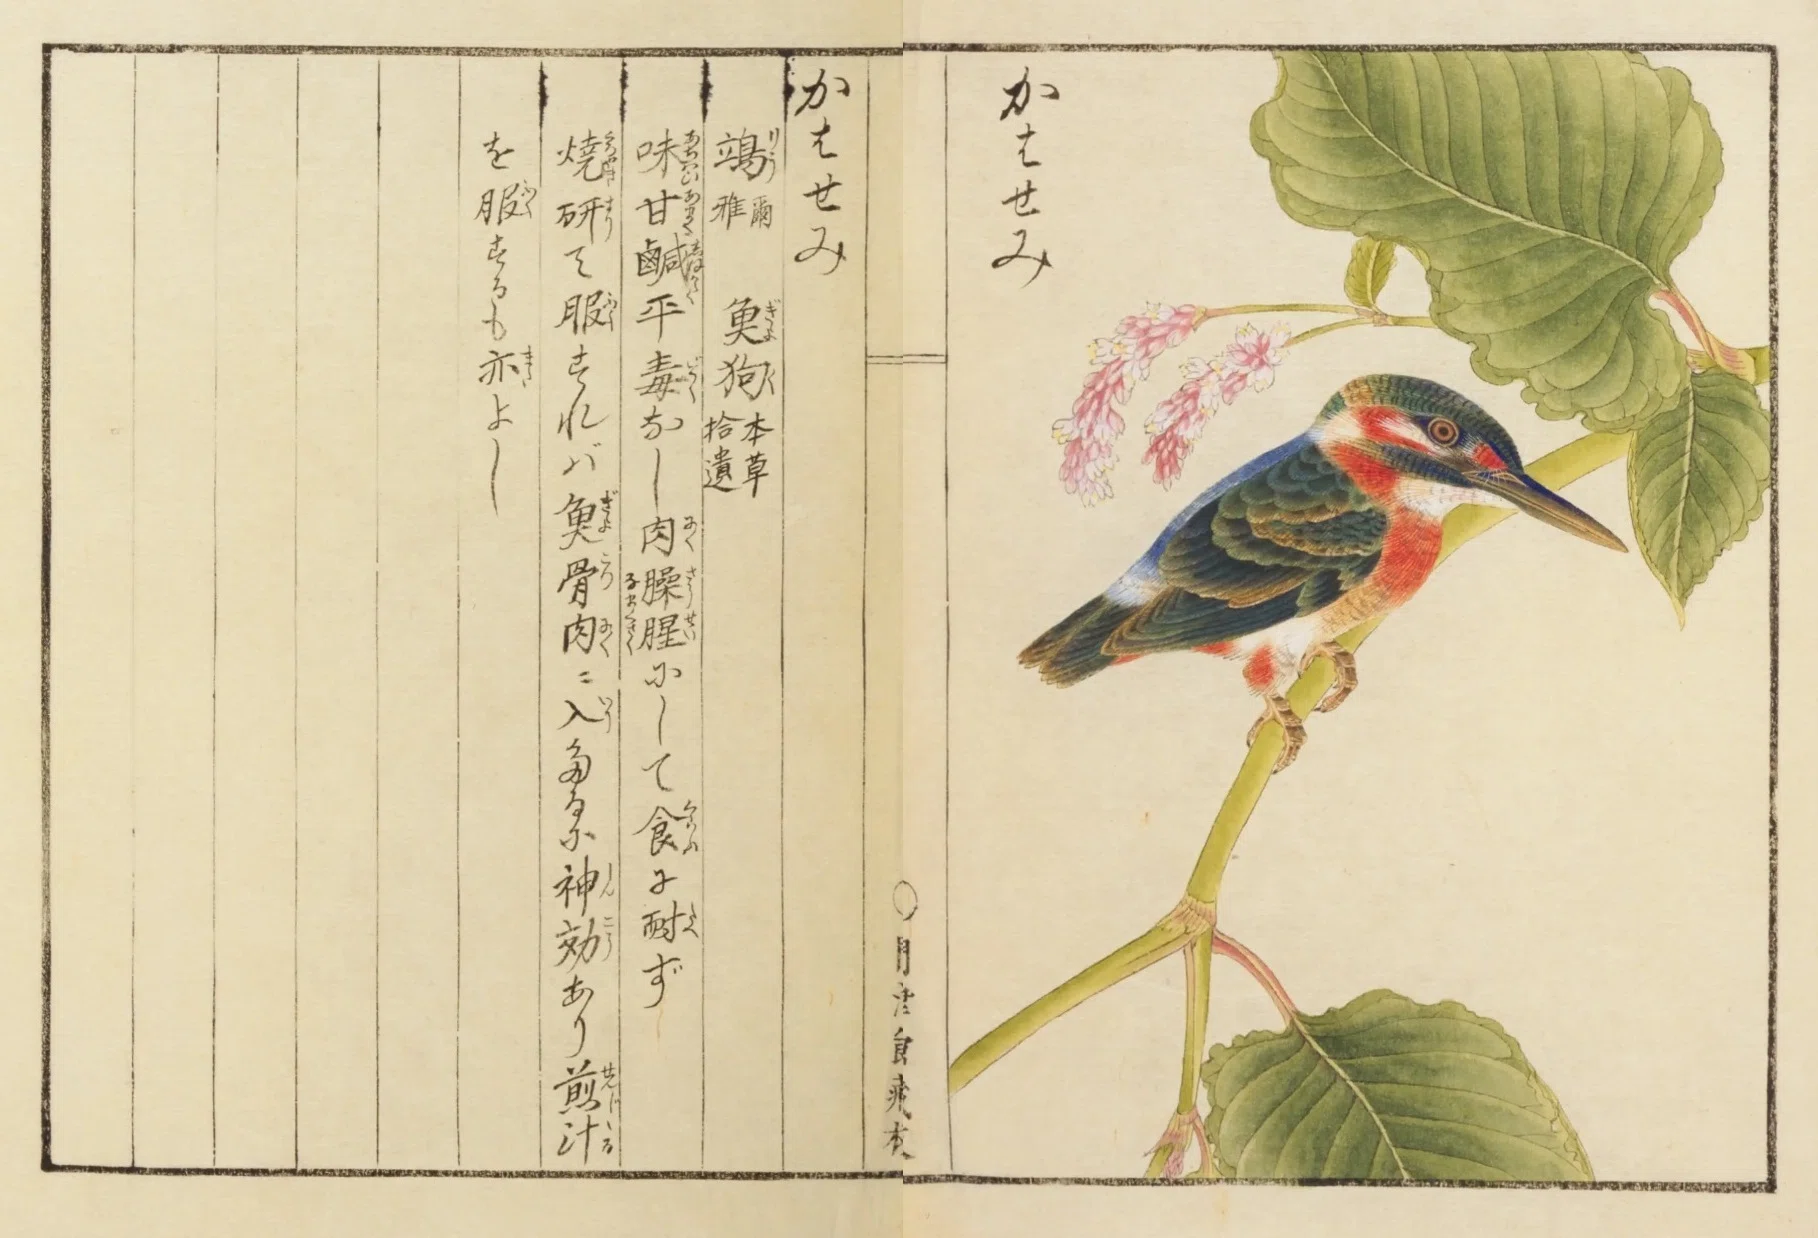 かはせみ
かはせみ
鴗 爾雅 魚狗 本草拾遺
味甘鹹平毒なし肉臊腥にして食に耐ず
焼研て服すれバ魚骨肉ニ入たるに神効あり煎汁
を服するも亦よし